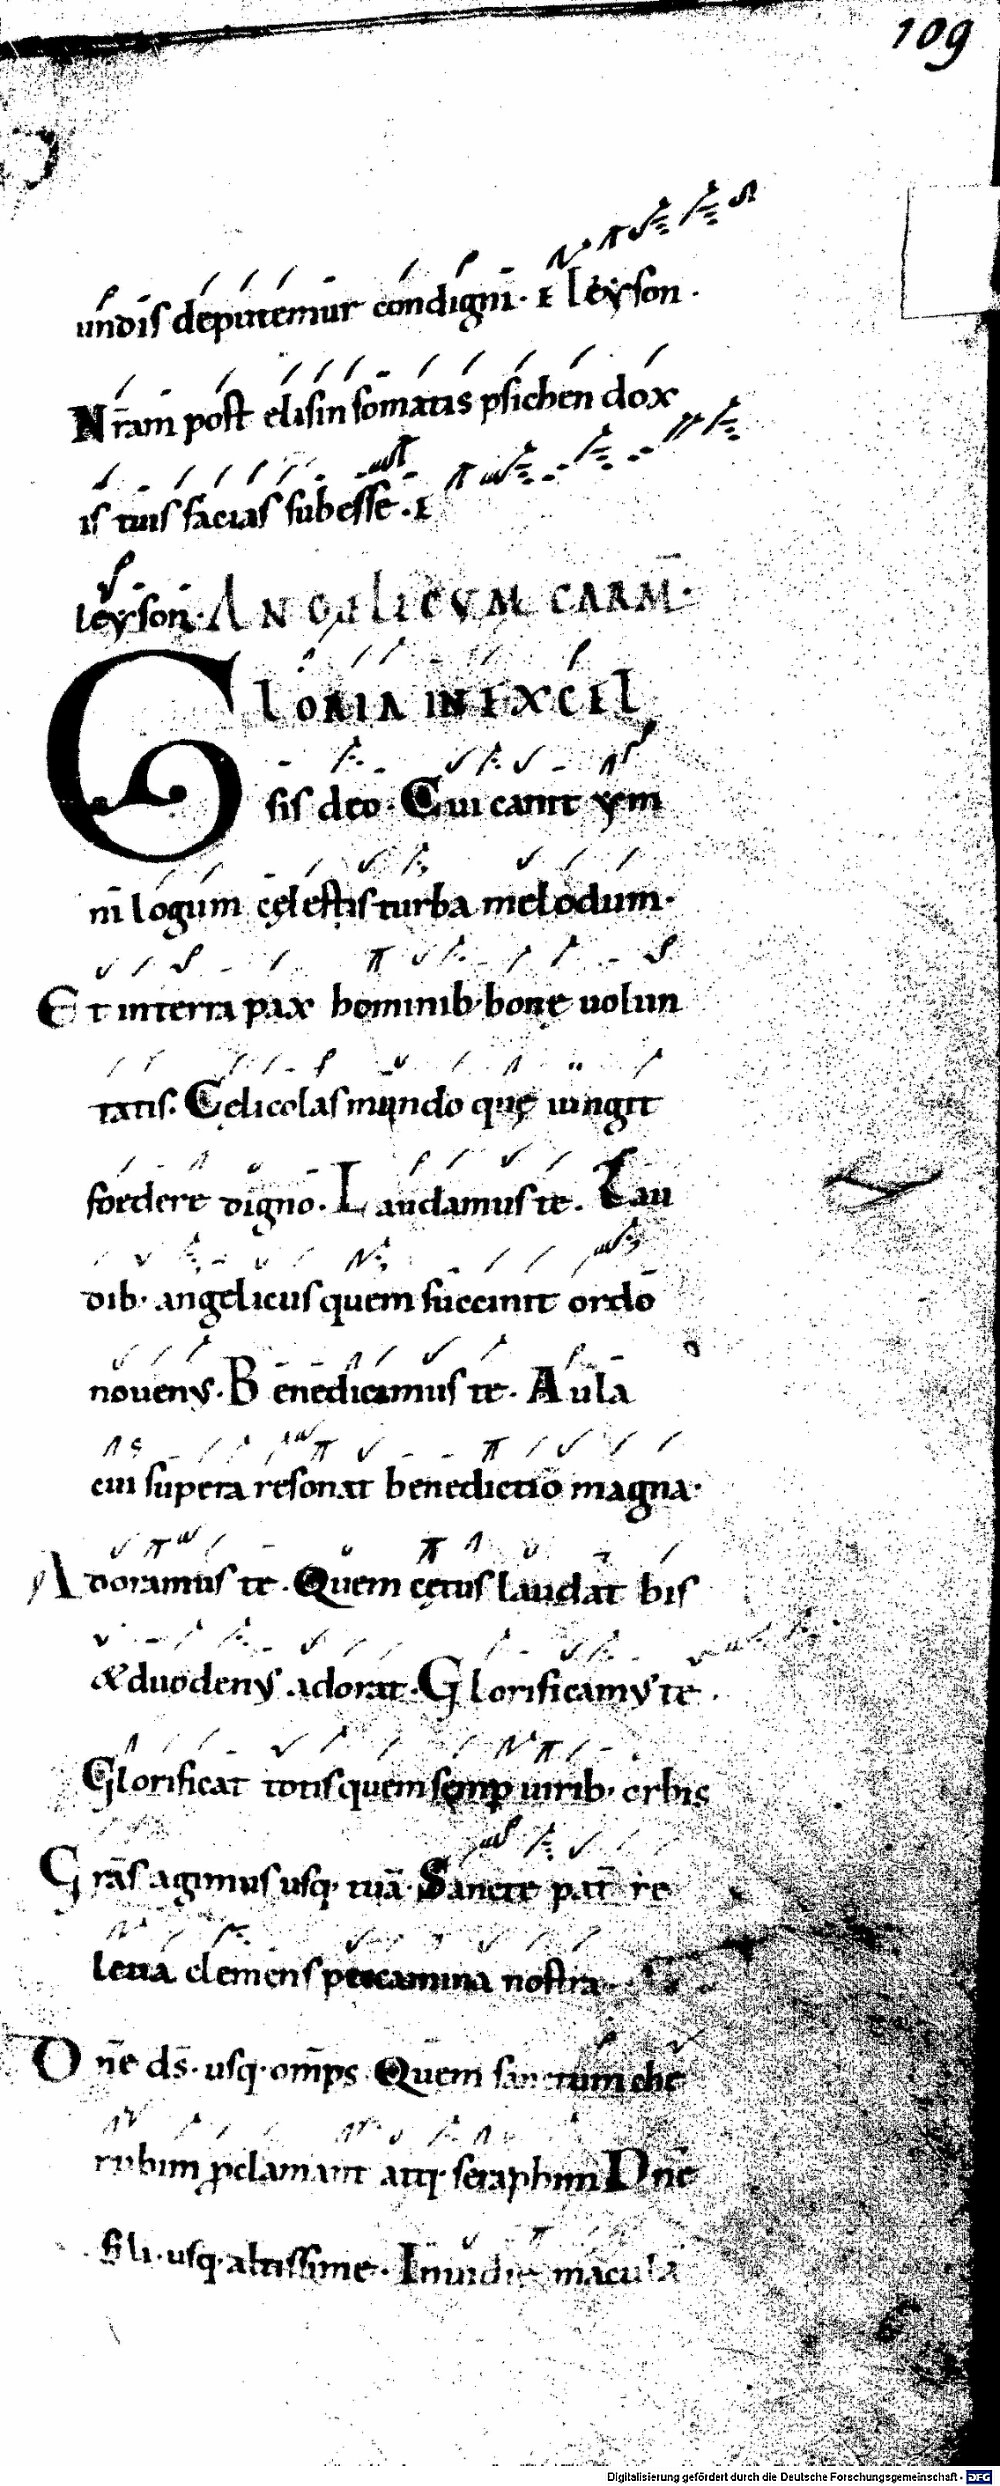 109
undis deputemur condigni. E leyson.
Nr̄am post elisin somatis psichen dox
is tuis facias subesse. E
leyson. ANGELICUM CARM̄.
GLORIA IN EXCEL
sis deo. Cui canit ym
ni logum cęlestis turba melodum.
Et in terra pax hominib; bonę uolun
tatis. Cęlicolas mundo quę iungit
foedere digno. Laudamus te. Lau
dib; angelicus quem succinit ordo
nouenꝰ. Benedicimus te. Aula
cui supera resonat benedictio magna.
Adoramus te. Quem cętus laudat bis
& duodenꝰ adorat. Glorificamꝰ te.
Glorificat totis quem semp̱ uirib; orbis
Gr̄as agimus usq; tuā. Sancte pat̄ re
leua clemens peccamina nostra.
Dn̄e ds̄. usq; om̄ps. Quem sanctum che
rubim ꝓclamant atq; seraphim Dn̄e
fili. usq; altissime. Inuidię macula
Digitalisierung gefördert durch die Deutsche Forschungsgemeinschaft - DFG